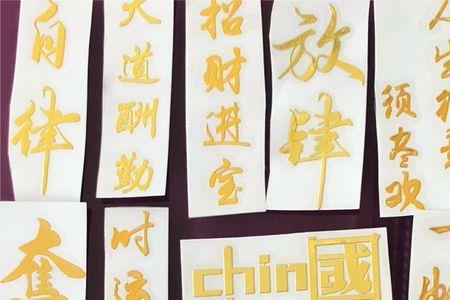 自律
天道酬勤
招财进宝
放肆
人生得意
须尽欢
时运
chin國
一帆